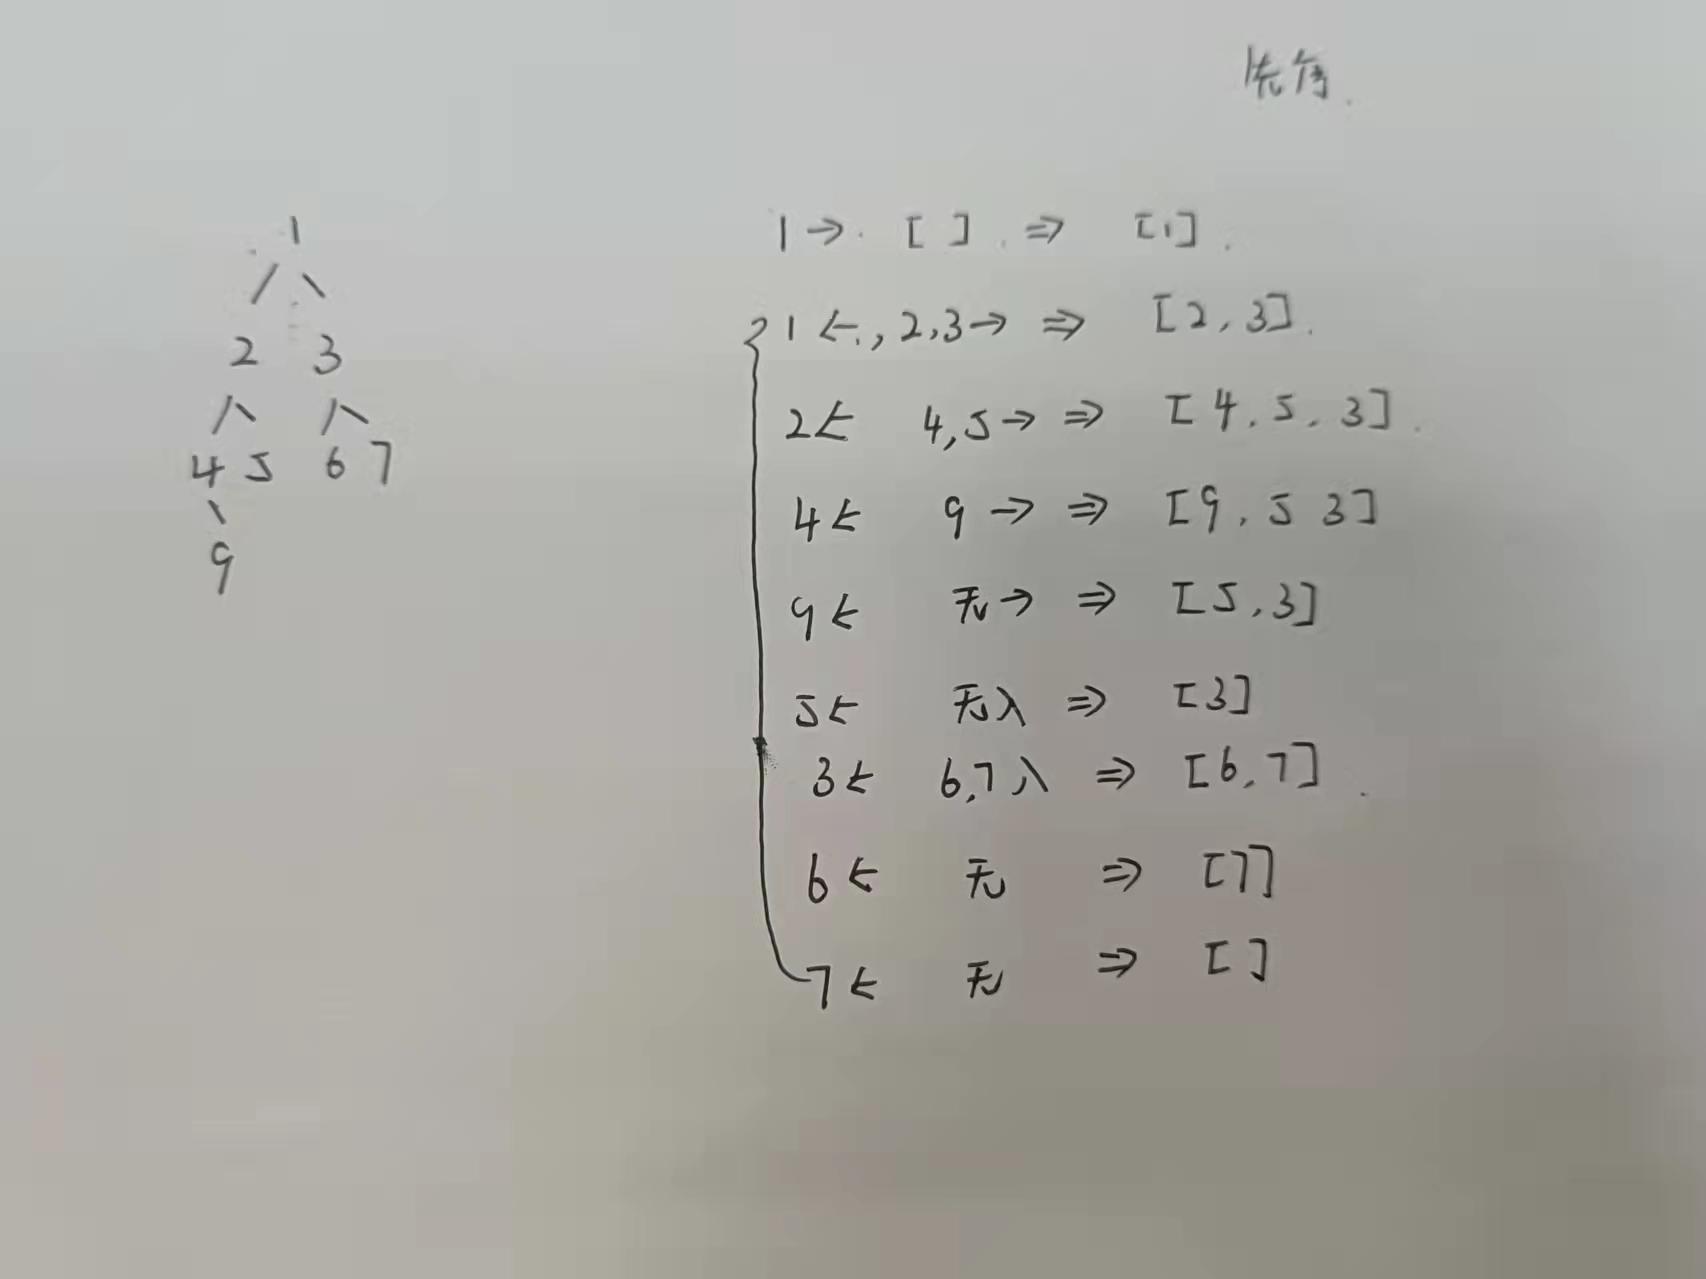 先序.
1
/ \
2 3
/\ /\
4 5 6 7
\
9
1→. [ ] ⇒ [1].
{ 1 ←., 2,3→ ⇒ [2,3].
2← 4,5→ ⇒ [4,5,3].
4← 9→ ⇒ [9,5 3]
9← 无→ ⇒ [5,3]
5← 无入 ⇒ [3]
3← 6,7入 ⇒ [6,7].
6← 无 ⇒ [7]
7← 无 ⇒ [ ]